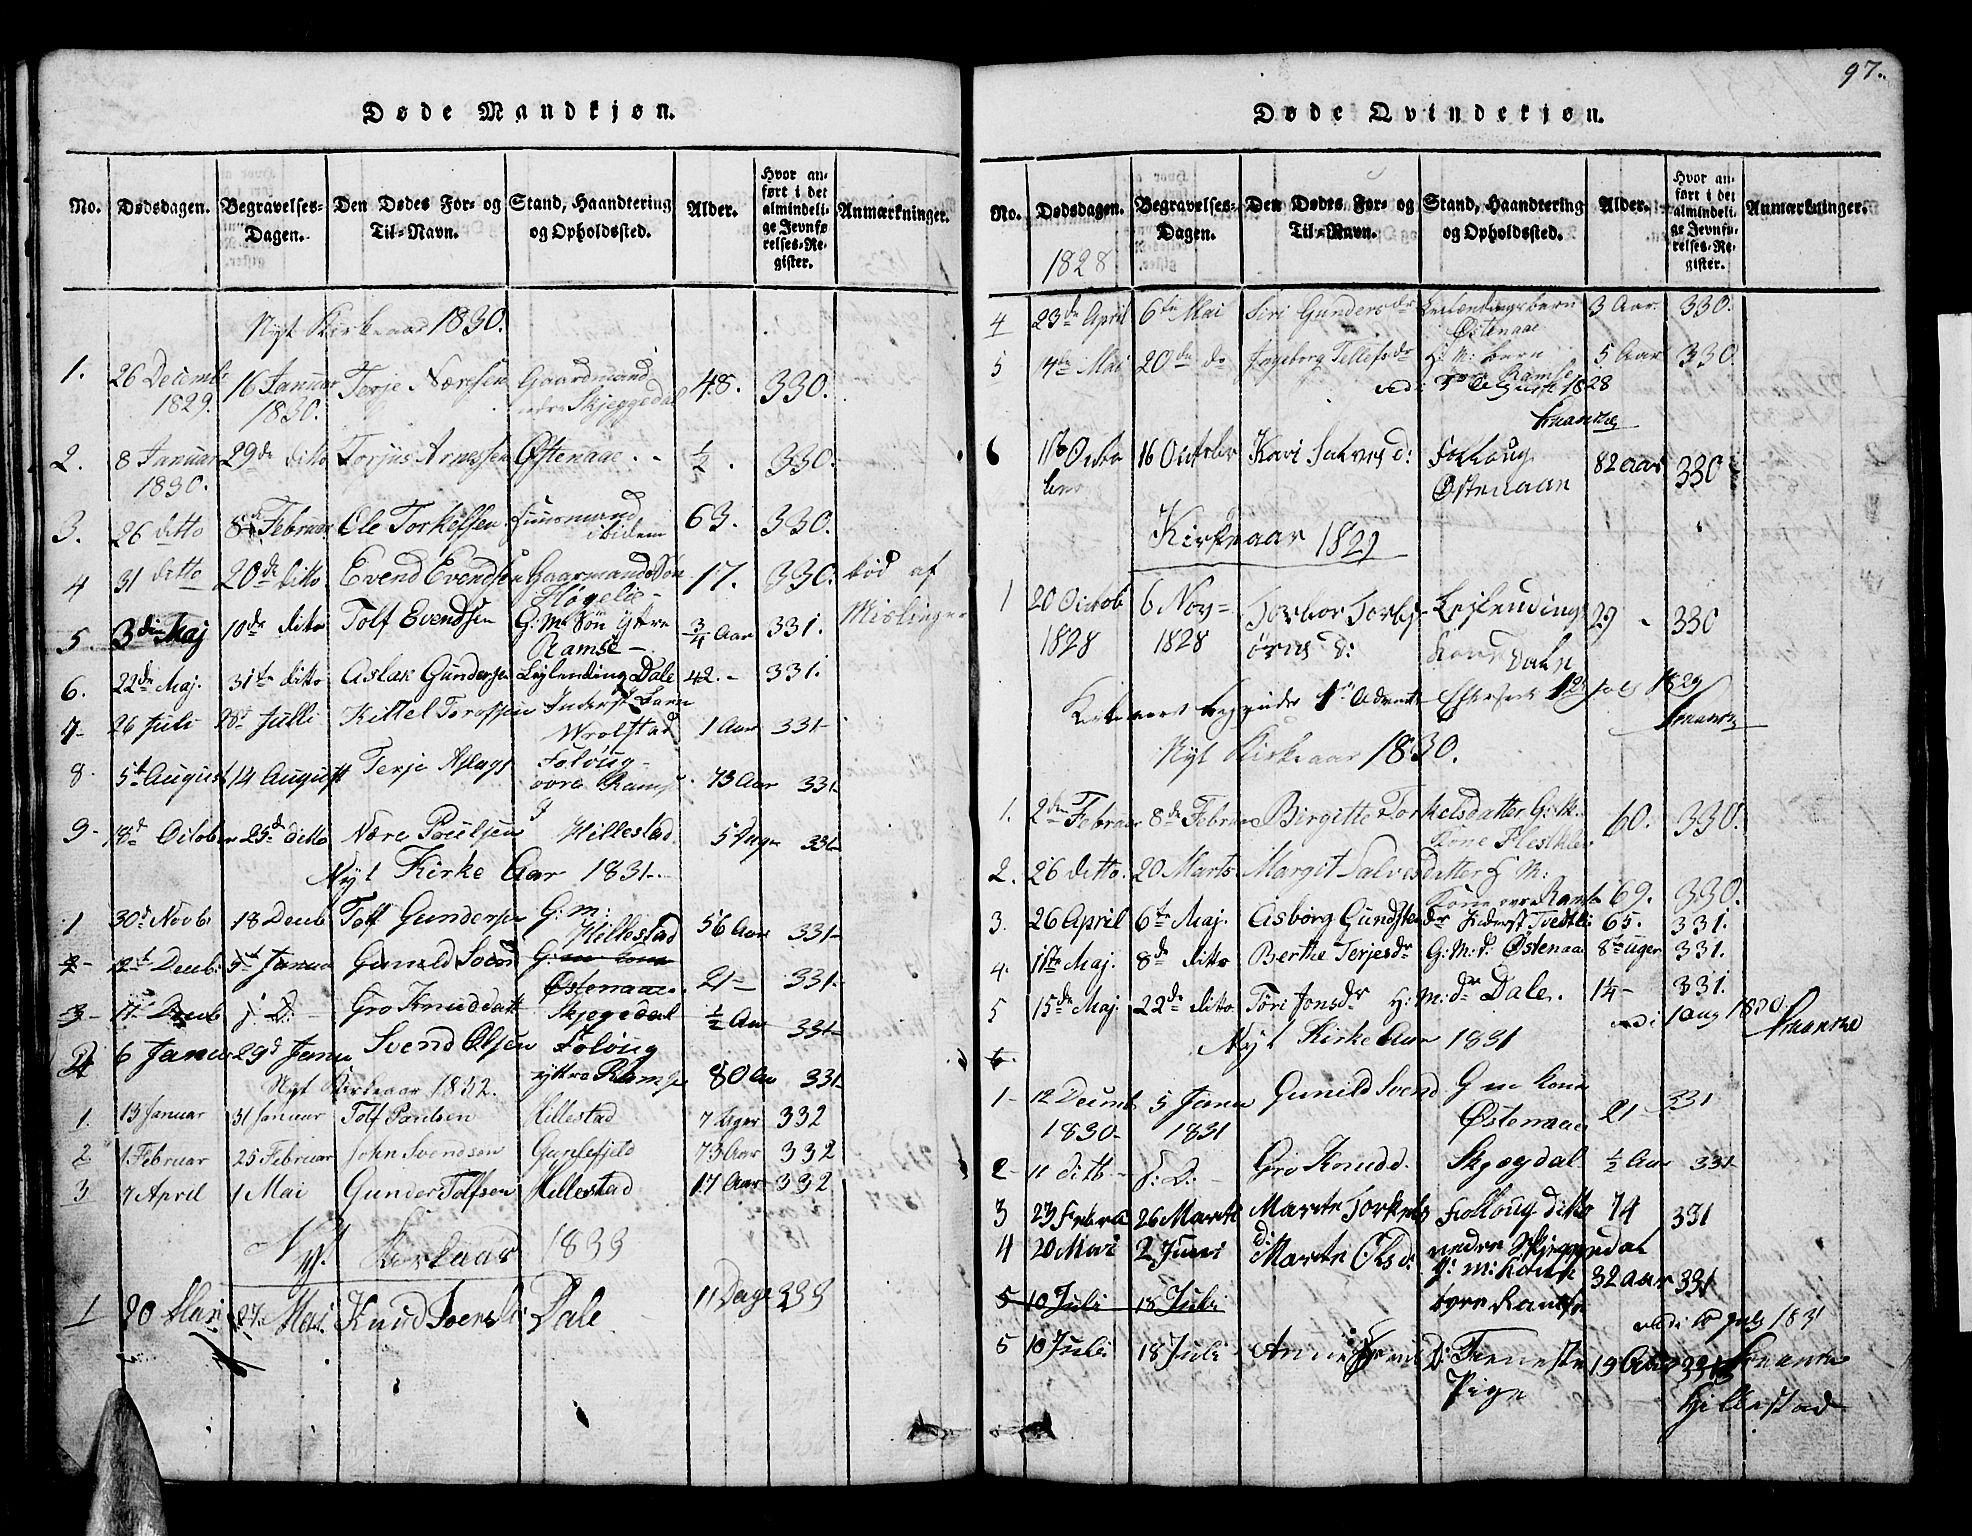 97.
Døde Mandkjøn.
No. Dødsdagen. Begravelses-Dagen. Den Dødes For- og Til-Navn. Stand, Haandtering og Opholdssted. Alder. Hvor anført i det almindelige Jevnførelses-Register. Anmærkninger.
Nyt Kirkeaar 1830.
1. 26 Decemb 1829. 16 Januar 1830. Terje Næresen Gaardmand Skjeggedal 48. 330.
2. 8 Januar 1830. 29de ditto Torjus Arnessen Østenaae ½. 330.
3. 26 ditto 8de Februar Ole Torkelsen Huusmand ibidem 63. 330.
4 31 ditto 20de ditto Evend Evendsen Gaarmands Søn Høgelie 17. 330. død af Mislinger
5 3die Maj 10de ditto Tolf Evendsen G: M: Søn ytre Ramse ¾ Aar 331.
6. 22de Maj. 31te ditto Aslak Gundersen Lejlending Dale 42. 331.
7 26 Juli 28de Julli Kittel Inderst Barn Wrolstad 1 Aar 331
8. 5te August 14 August Terje Aslags Foloug øvre Ramse 73 Aar 331
9 18de October 25de ditto Nære Poulsen Hillestad 331
Nyt Kirke Aar 1831
1 30te Novb 18 Decb Tolf Gundersen G: m: Hillestad 56 Aar 331
2 12te Decb: 5te Janu Gunild Svend G: m kone Østenaae 21 331
3 11te Decb d: D: Gro Knudsdatt Skjegedal ½ Aar 331
2 6 Janu 29de Janu Svend Olsen Foloug yttre Ramse 80 Aar 331
Nyt Kirkeaar 1832.
1. 13 Januar 31 Januar Tolf Poulsen Hillestad 7 Uger 332
2 1 Februar 25 Februar John Svendsen Gunlefjeld 73 Aar 332
3 7 April 1 Mai Gunder Tolfsen Hillestad 17 Aar 332
Nyt Kirkeaar 1833
1 20 Mai Knud Dale 11 Dage 333
Døde Qvindekjøn.
No. Dødsdagen. Begravelses-Dagen. Den Dødes For- og Til-Navn. Stand, Haandtering og Opholdssted. Alder. Hvor anført i det almindelige Jevnførelses-Register. Anmærkninger.
1828
4 23de April 6te Mai Siri Gundersdr Leilændingsbarn Østenaae 3 Aar. 330.
5 14de Mai 20de do Ingeborg Tellefsdr H: M: barn øvre Ramse 5 Aar 330.
August 1828
6 October 16 October Kari Salves d: Folloug Østenaae 82 aar 330
Kirkeaar 1829
1 20 Octob 1828 6 Nov 1828 Torbor Torbjørns d: Lejlending Kone Dale 29 330
1829
Nyt Kirkeaar 1830.
1. 2den Februar 8de Februar Birgitte Torkelsdatter G: M: Kone 60. 330.
2. 26 ditto. 20 Marts Margit Salvesdatter H M: Kone øvre Ramse 69. 330.
3. 26 April 6te Maj. Asbørg Gundstendr Inderst Tvedtli 65. 331.
4. 1ste Maj. 8de ditto Berthe Terjesdr G: M: d. Østenaae 8te uger 331.
5 15de Maj. 22de ditto Tøri Jonsdr H: M: dr Dale. 14 331.
1 aug 1830
Nyt Kirke Aar 1831
6
1 12 Decemb 1830 5 Janu 1831 Gunild Svend G m kone Østenaae 21 331
2 11 ditto d: D: Gro Knudd. Skjegdal ½ Aar 331
3 23 Febru 26 Marts Marte Torkels d: Folloug ditto nedre Skjeggedal 74 331
4 20 Mai 2 Juni Marte Olsd: G: M: kone øvre Ramse 32 aar 331
5 10 Juli 18 Juli
July 1831
5 10 Juli 18 Juli Anne D: Tieneste Pige 19 Aar 331 Hillestad